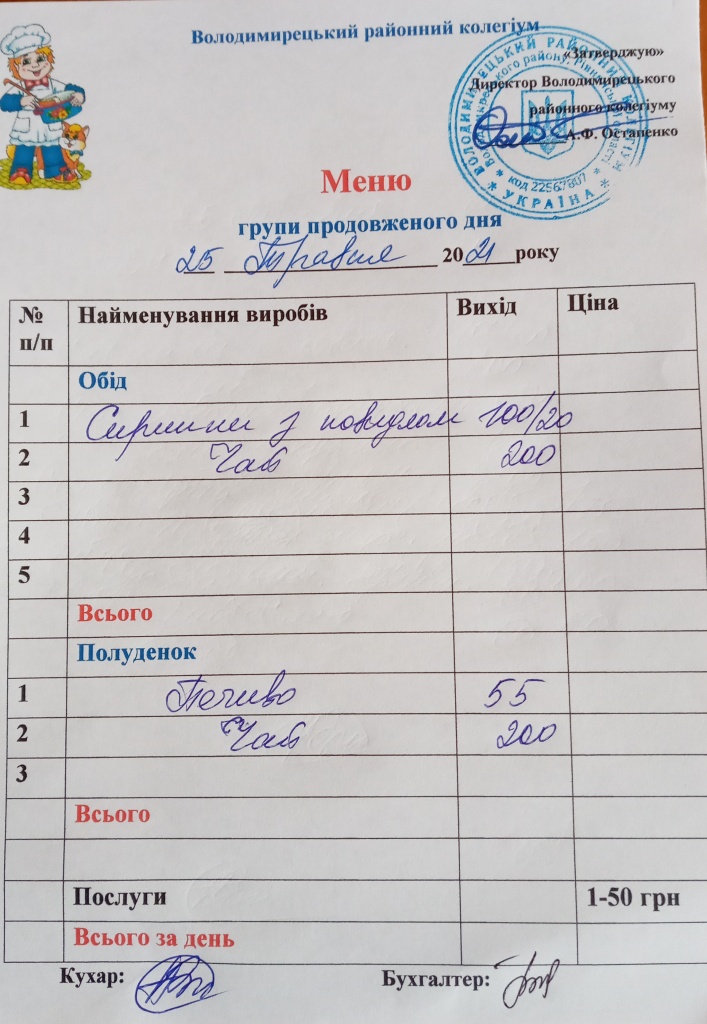 Володимирецький районний колегіум
«Затверджую»
Директор Володимирецького
районного колегіуму
А.Ф. Остапенко
ВОЛОДИМИРЕЦЬКИЙ РАЙОННИЙ КОЛЕГІУМ
Володимирецького району, Рівненської області
код 22567807
* УКРАЇНА *
Меню
групи продовженого дня
25 Травня 2021 року
№ п/п Найменування виробів Вихід Ціна
Обід
1 Сирники з повидлом 100/20
2 Чай 200
3
4
5
Всього
Полуденок
1 Печиво 55
2 Чай 200
3
Всього
Послуги 1-50 грн
Всього за день
Кухар: Бухгалтер: